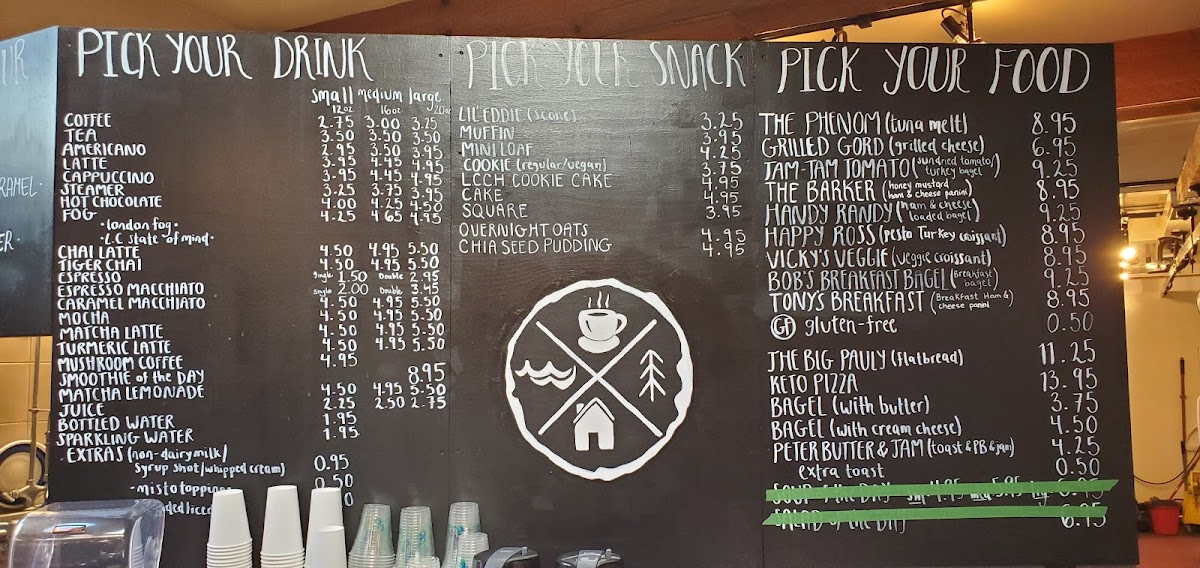 PICK YOUR DRINK
small medium large
12oz 16oz 20oz
COFFEE 2.75 3.00 3.25
TEA 3.50 3.50 3.50
AMERICANO 2.95 3.50 3.95
LATTE 3.95 4.45 4.95
CAPPUCCINO 3.95 4.45 4.95
STEAMER 3.25 3.75 3.95
HOT CHOCOLATE 4.00 4.25 4.50
FOG 4.25 4.65 4.95
• london fog •
• L.C state of mind •
CHAI LATTE 4.50 4.95 5.50
TIGER CHAI 4.50 4.95 5.50
ESPRESSO Single 2.50 Double 2.95
ESPRESSO MACCHIATO Single 2.00 Double 3.45
CARAMEL MACCHIATO 4.50 4.95 5.50
MOCHA 4.50 4.95 5.50
MATCHA LATTE 4.50 4.95 5.50
TURMERIC LATTE 4.50 4.95 5.50
MUSHROOM COFFEE 4.95
SMOOTHIE of the DAY 8.95
MATCHA LEMONADE 4.50 4.95 5.50
JUICE 2.25 2.50 2.75
BOTTLED WATER 1.95
SPARKLING WATER 1.95
EXTRAS (non-dairy milk/
Syrup shot/whipped cream) 0.95
• misto topping 0.50
PICK YOUR SNACK
LIL' EDDIE (scone) 3.25
MUFFIN 3.95
MINI LOAF 4.25
COOKIE (regular/vegan) 3.75
LCCH COOKIE CAKE 4.95
CAKE 4.95
SQUARE 3.95
OVERNIGHT OATS 4.95
CHIA SEED PUDDING 4.95
PICK YOUR FOOD
THE PHENOM (tuna melt) 8.95
GRILLED GORD (grilled cheese) 6.95
JAM-TAM TOMATO (sundried tomato/ turkey bagel) 9.25
THE BARKER (honey mustard ham & cheese panini) 8.95
HANDY RANDY (ham & cheese loaded bagel) 9.25
HAPPY ROSS (pesto Turkey croissant) 8.95
VICKY'S VEGGIE (veggie croissant) 8.95
BOB'S BREAKFAST BAGEL (Breakfast bagel) 9.25
TONY'S BREAKFAST (Breakfast Ham & cheese panini) 8.95
GF gluten-free 0.50
THE BIG PAULY (flatbread) 11.25
KETO PIZZA 13.95
BAGEL (with butter) 3.75
BAGEL (with cream cheese) 4.50
PETER BUTTER & JAM (toast & PB & jam) 4.25
extra toast 0.50
SALAD of the DAY 6.95